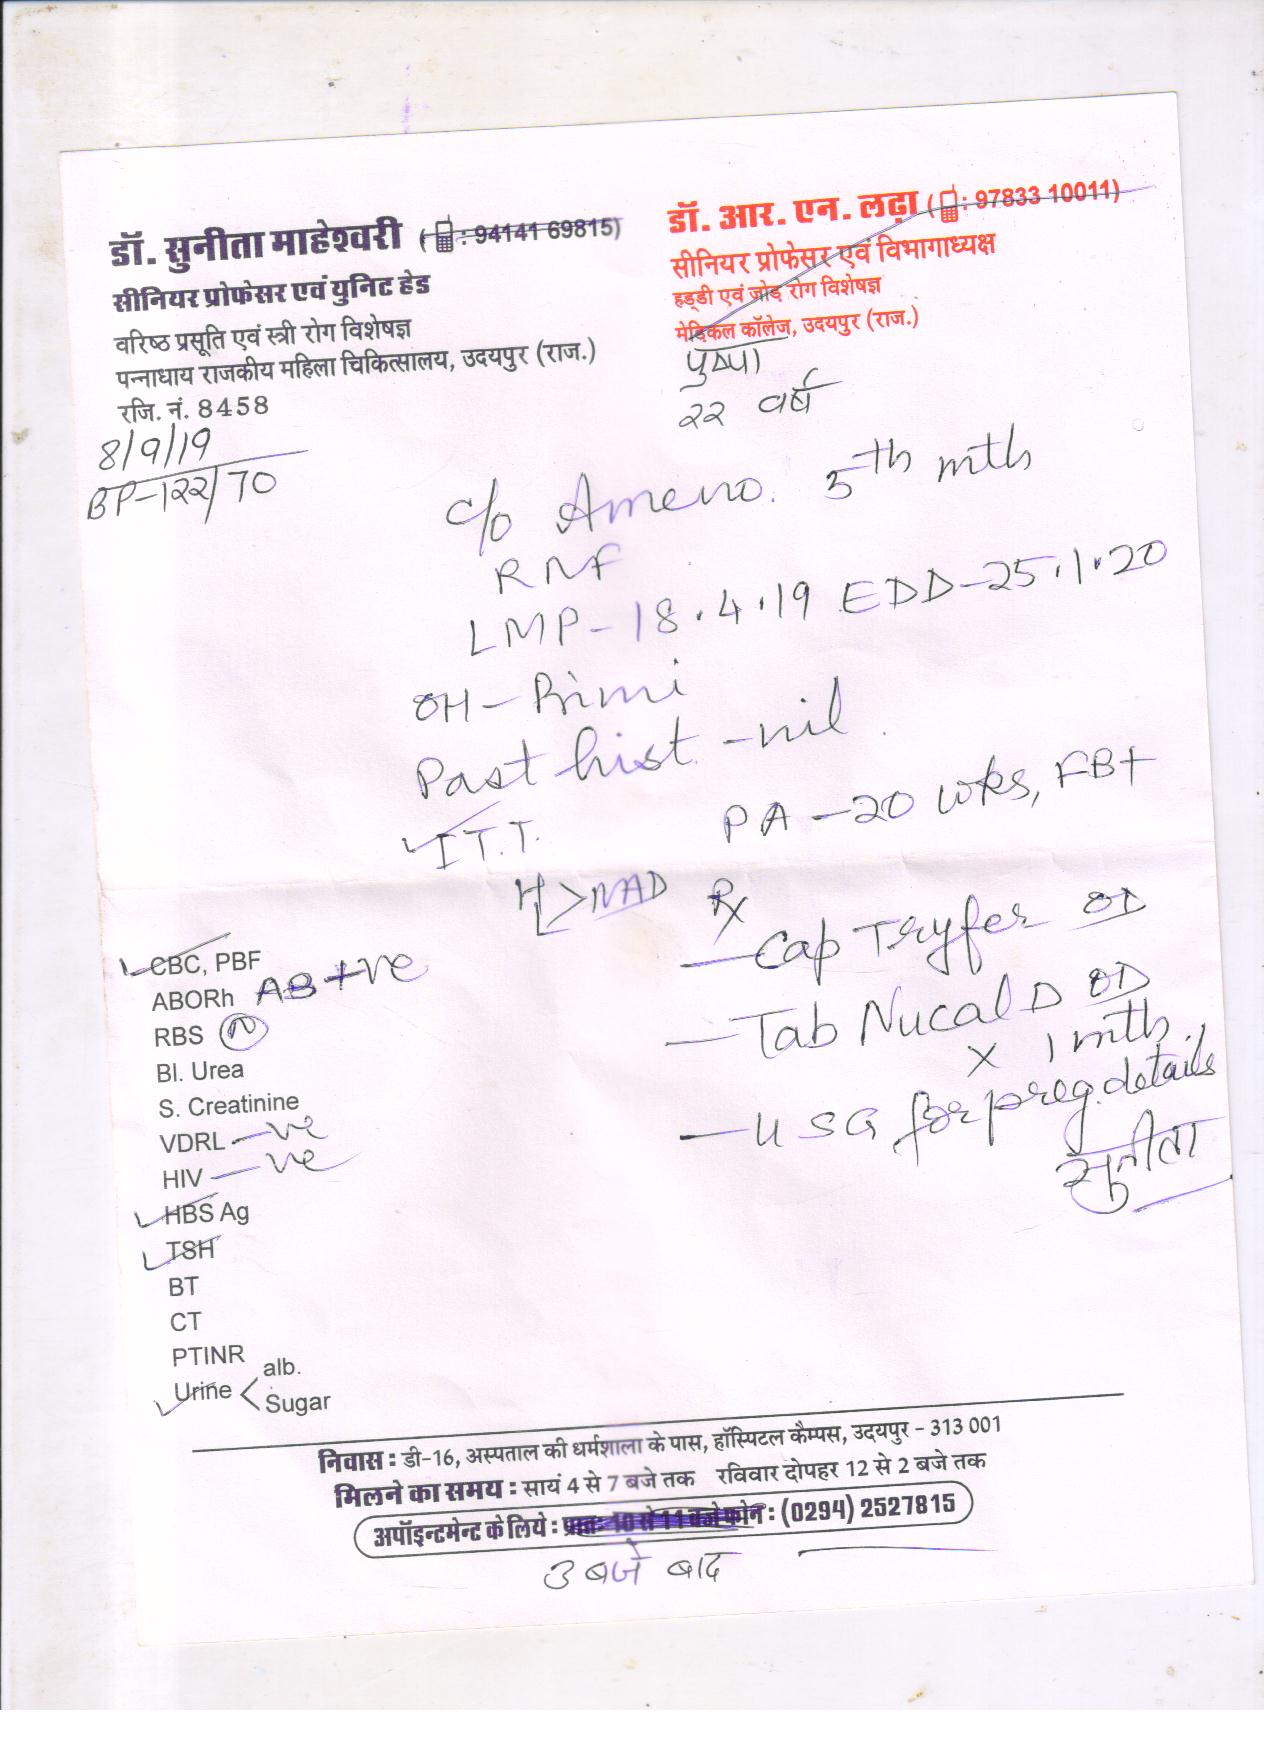 डॉ. सुनीता माहेश्वरी (: 94141 69815)
सीनियर प्रोफेसर एवं युनिट हेड
वरिष्ठ प्रसूति एवं स्त्री रोग विशेषज्ञ
पन्नाधाय राजकीय महिला चिकित्सालय, उदयपुर (राज.)
रजि. नं. 8458
डॉ. आर. एन. लढ़ा (: 97833 10011)
सीनियर प्रोफेसर एवं विभागाध्यक्ष
हड्डी एवं जोड़ रोग विशेषज्ञ
मेदिकल कॉलेज, उदयपुर (राज.)
पुष्पा
२२ वर्ष
8/9/19
BP-122/70
c/o Ameno. 5th mth
RNF
LMP-18.4.19 EDD-25.1.20
OH-Primi
Past hist.-nil.
I T.T.
PA-20 wks, FB+
H/L>NAD
Rx
-Cap Tryfer OD
-Tab Nucal D OD
x 1 mth.
-USG for preg. details
सुनीता
CBC, PBF
ABORh AB+ve
RBS (N)
Bl. Urea
S. Creatinine
VDRL -ve
HIV -ve
HBS Ag
TSH
BT
CT
PTINR
Urine < alb.
Sugar
निवास : डी-16, अस्पताल की धर्मशाला के पास, हॉस्पिटल कैम्पस, उदयपुर - 313 001
मिलने का समय : सायं 4 से 7 बजे तक रविवार दोपहर 12 से 2 बजे तक
अपॉइन्टमेन्ट के लिये : प्रातः 10 से 11 बजे फोन : (0294) 2527815
3 बजे बाद